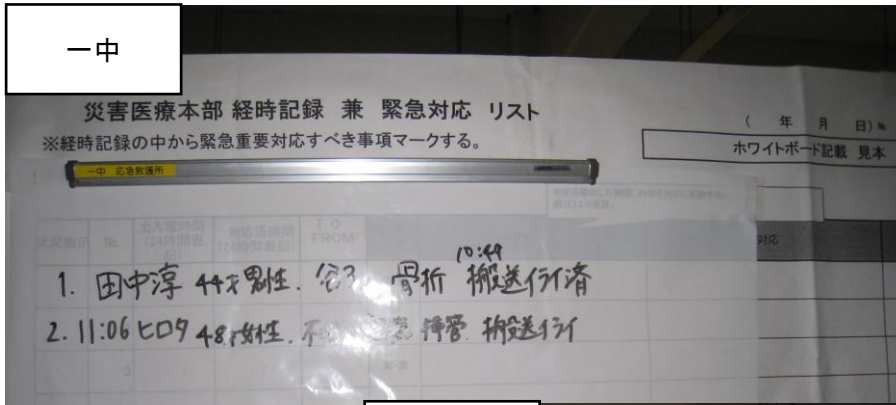 一中
災害医療本部 経時記録 兼 緊急対応 リスト
( 年 月 日)№
※経時記録の中から緊急重要対応すべき事項マークする。
ホワイトボード記載 見本
一中 応急救護所
状況表示 № 出入電時間 (24時間表記) 対応済時間 (24時間表記) TO FROM
対応
10:49
1. 田中淳 44才男性. 骨折 搬送イライ済
2. 11:06 ヒロタ 48才女性. 挿管 搬送イライ
3